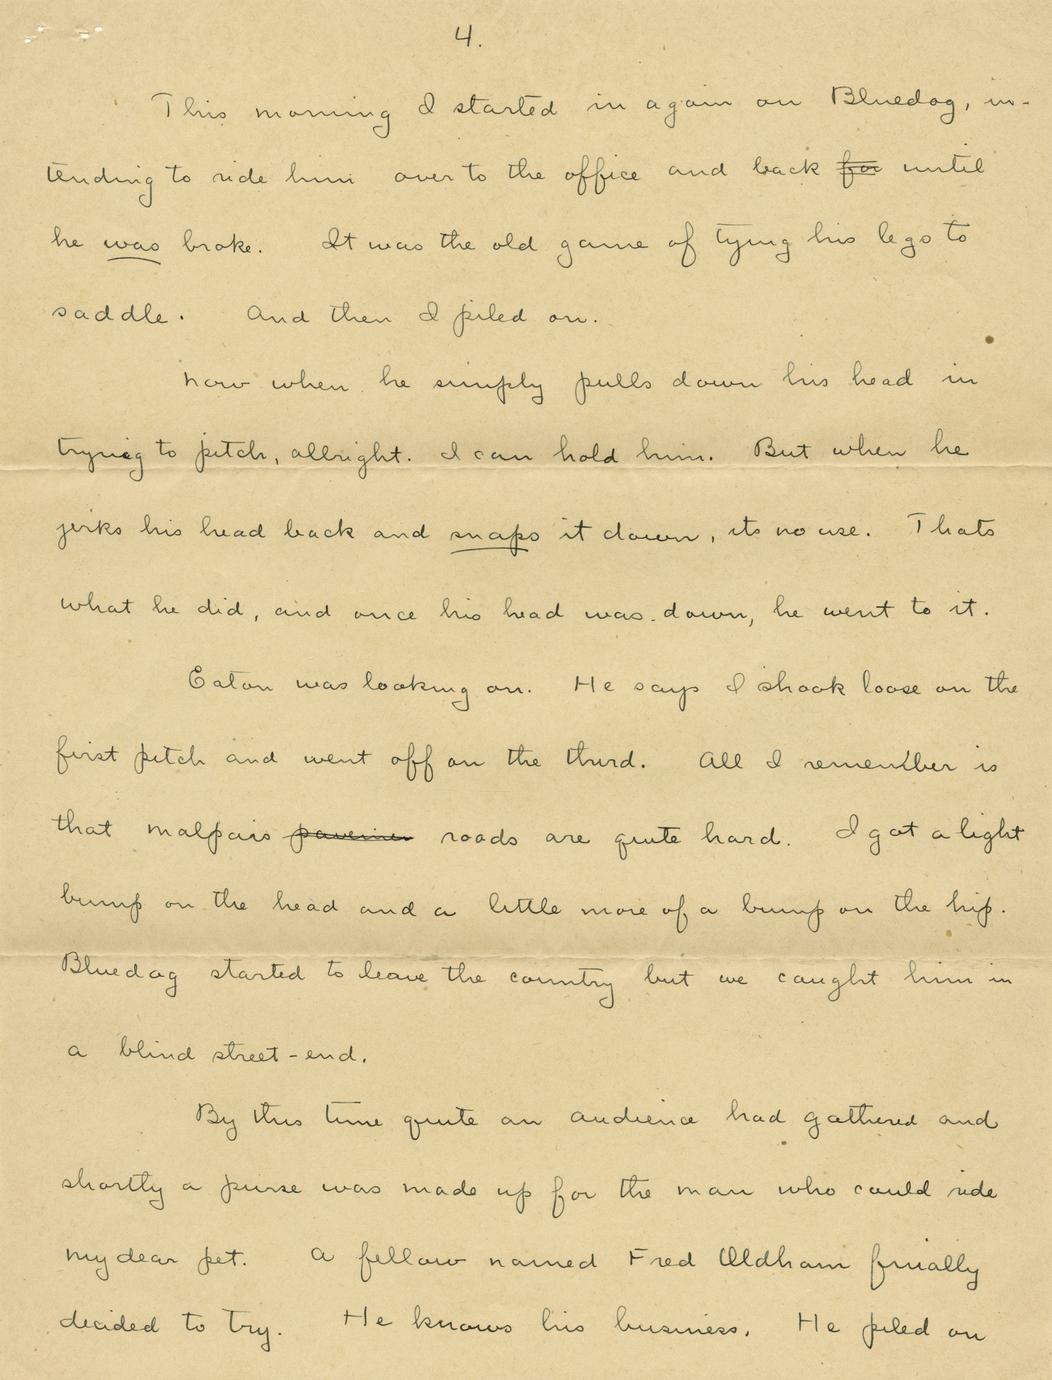 4.
This morning I started in again on Bluedog, in-
tending to ride him over to the office and back for until
he was broke. It was the old game of tying his legs to
saddle. And then I piled on.
Now when he simply pulls down his head in
trying to pitch, allright. I can hold him. But when he
jerks his head back and snaps it down, its no use. Thats
what he did, and once his head was down, he went to it.
Eaton was looking on. He says I shook loose on the
first pitch and went off on the third. All I remember is
that malpais pavemen roads are quite hard. I got a light
bump on the head and a little more of a bump on the hip.
Bluedog started to leave the country but we caught him in
a blind street-end.
By this time quite an audience had gathered and
shortly a purse was made up for the man who could ride
my dear pet. A fellow named Fred Oldham finially
decided to try. He knows his business. He piled on